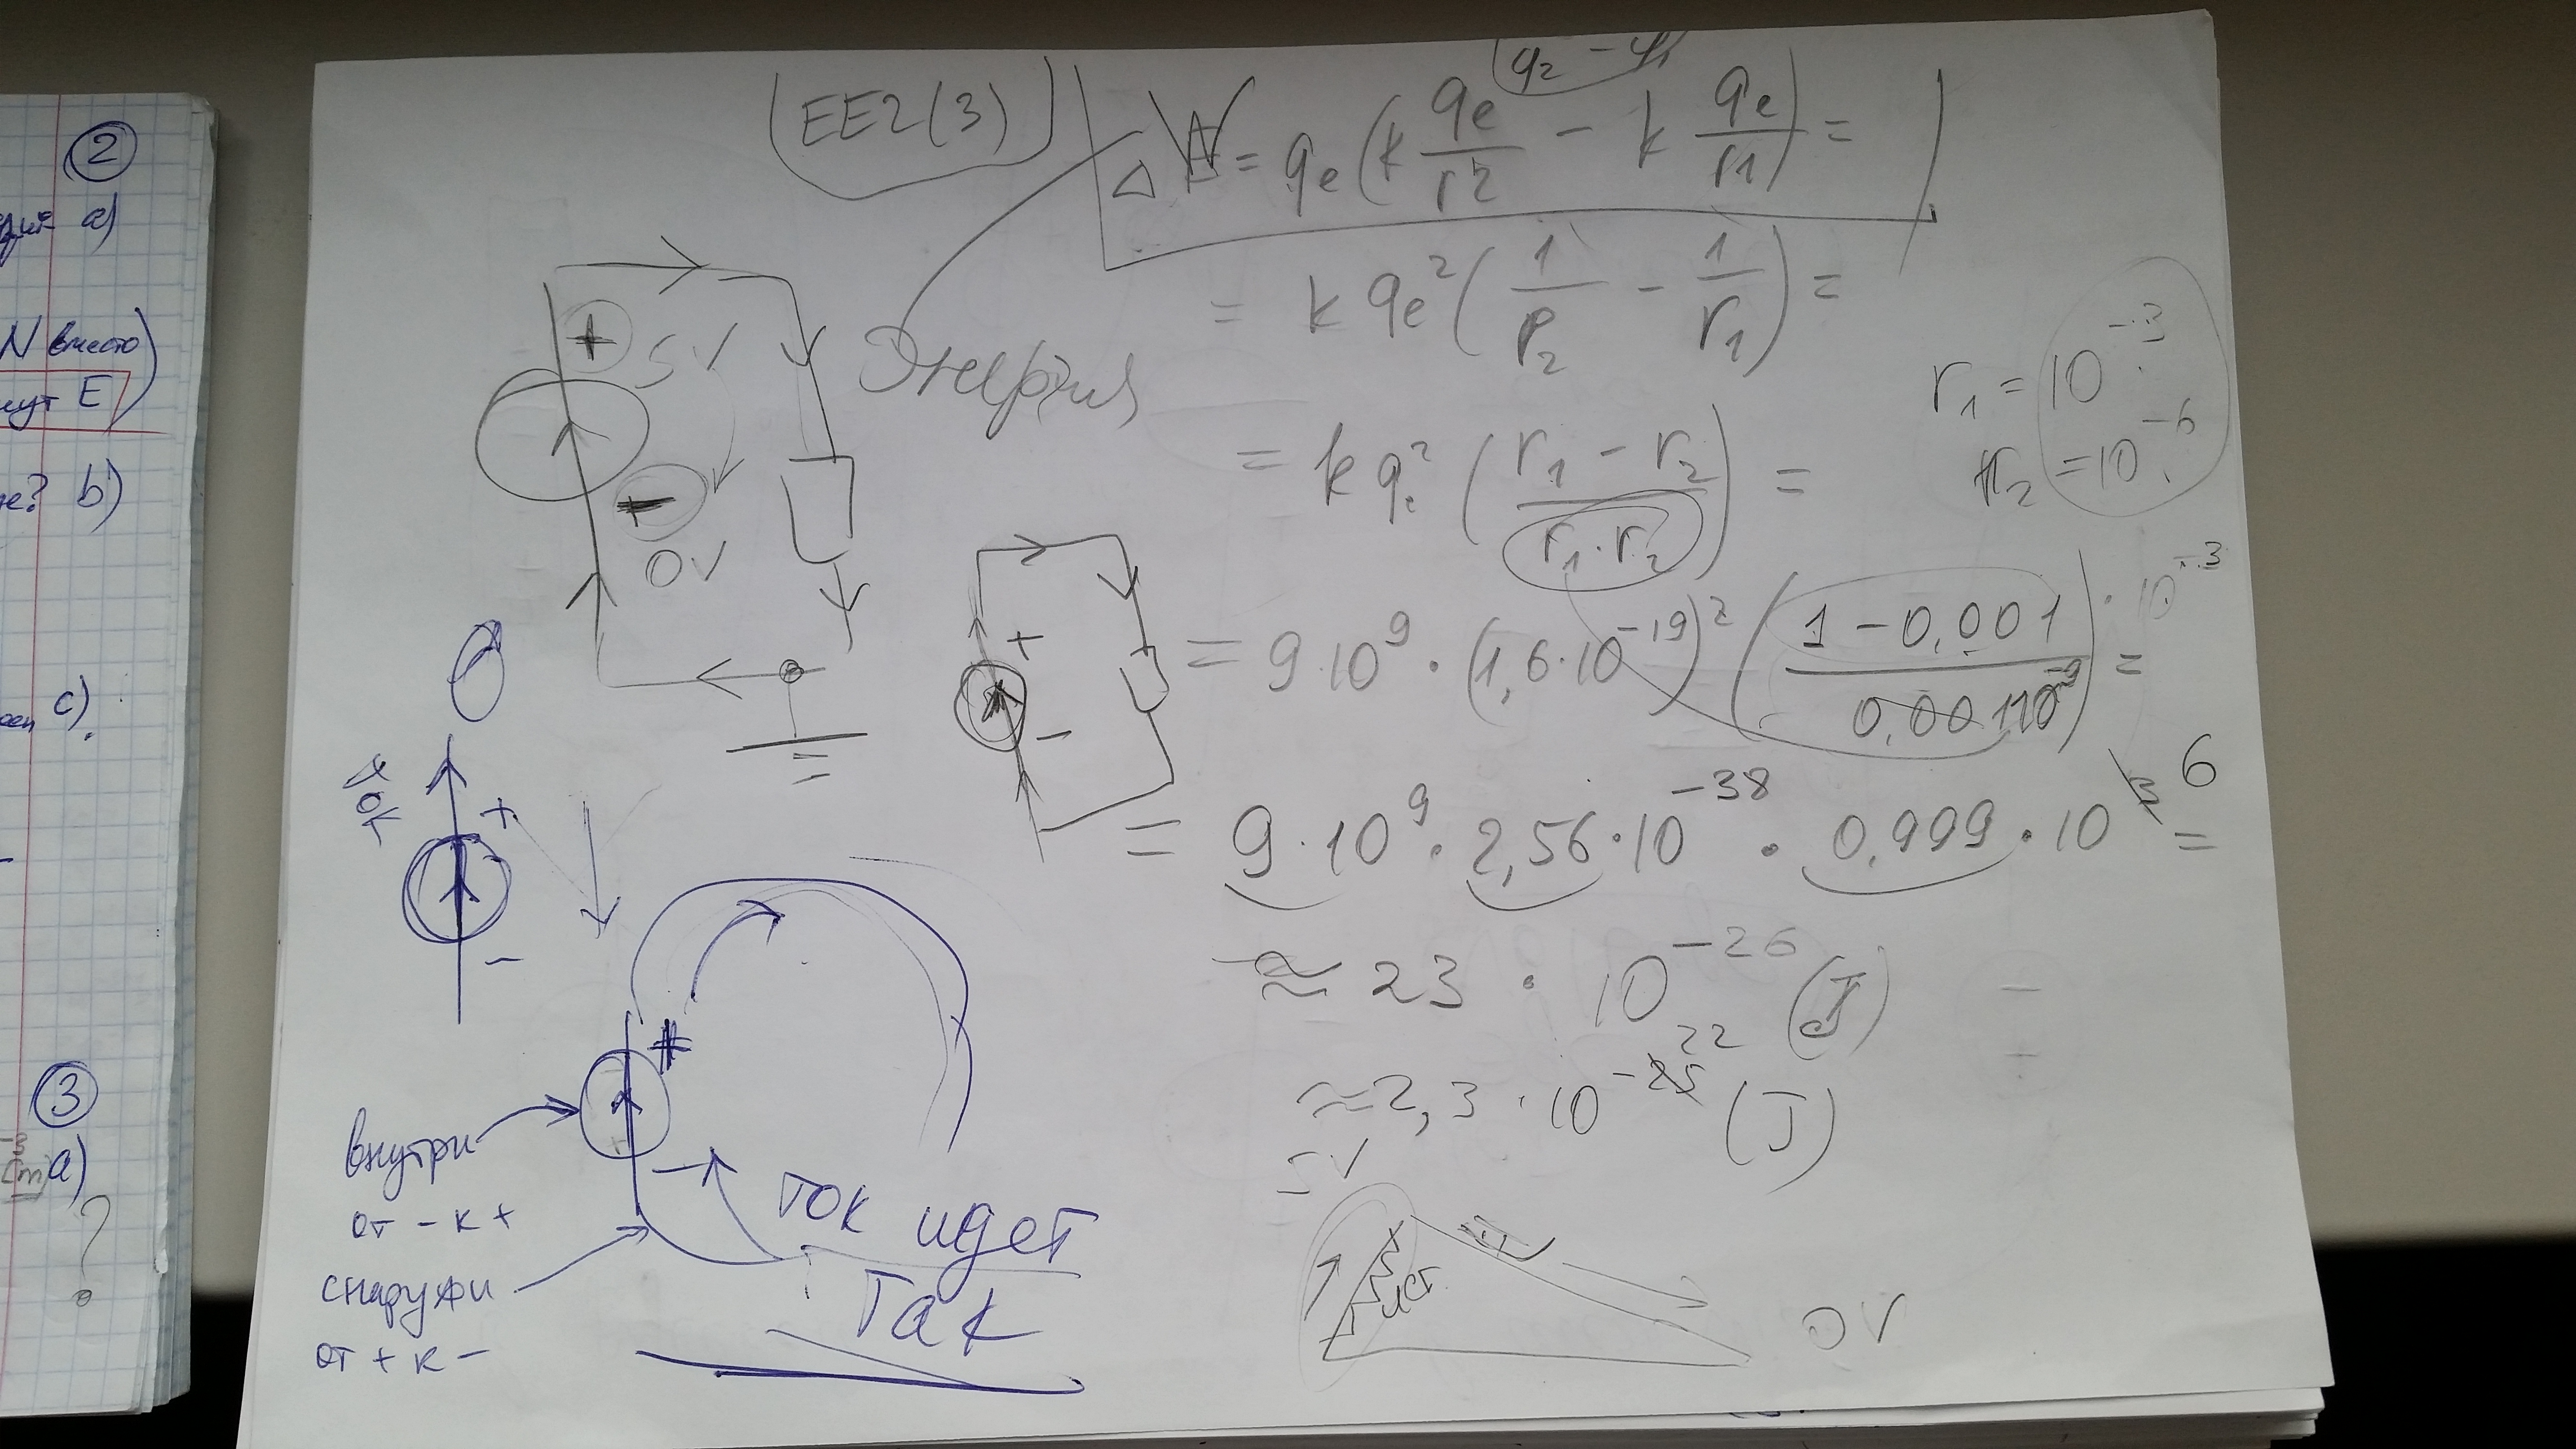 ②
a)
N вместо
E
е? b)
c)
③
a)
?
EE2(3)
φ2 - φ1
ΔW = qe(k qe/r2 - k qe/r1) =
= k qe²(1/r2 - 1/r1) =
r1 = 10⁻³
r2 = 10⁻⁶
= k q² (r1 - r2 / r1·r2) =
= 9·10⁹ · (1,6·10⁻¹⁹)² (1 - 0,001 / 10⁻⁹) · 10⁻³ =
= 9·10⁹ · 2,56·10⁻³⁸ · 0,999 · 10⁶ =
≈ 23 · 10⁻²⁶ (J)
≈ 2,3 · 10⁻²² (J)
Энергия
+ 5V
-
0V
+
-
ток
+
-
внутри
от - к +
снаружи
от + к -
+
-
ток идет
так
5V
ист.
0V